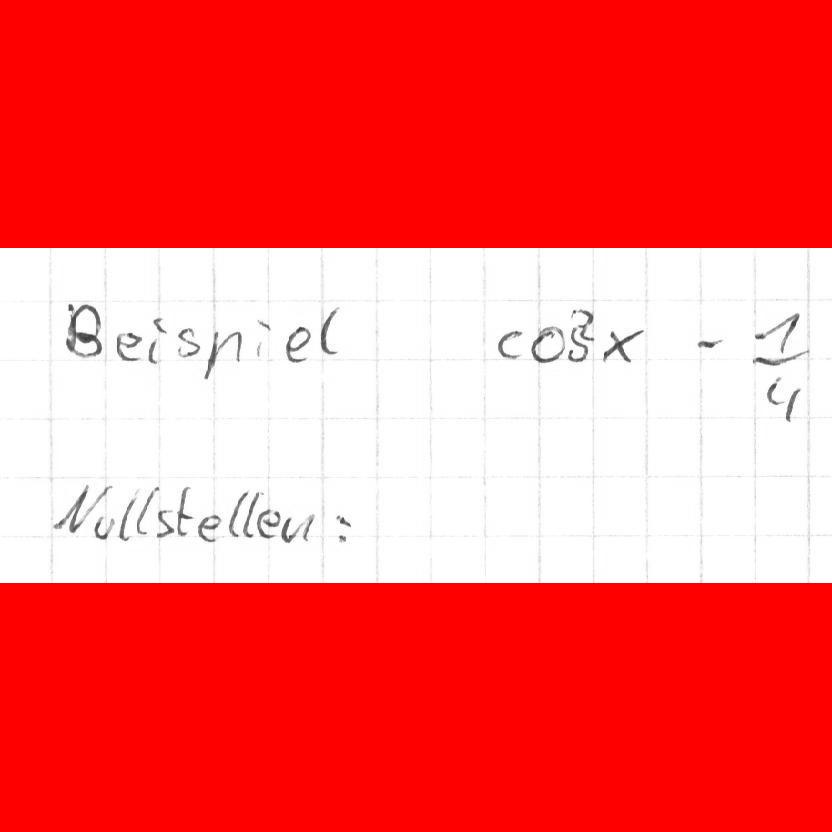 Beispiel cos²x - 1/4
Nullstellen: